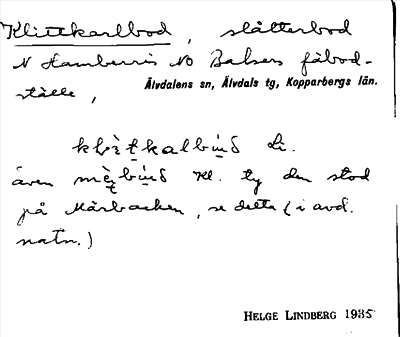 Klittkarlbod, slåtterbod
N Hamberris NO Balsers fäbod-
ställe,
Älvdalens sn, Älvdals tg, Kopparbergs län.
Li.
även Kl. ty den stod
på Märbacken, se detta (i avd.
natn.)
HELGE LINDBERG 1935